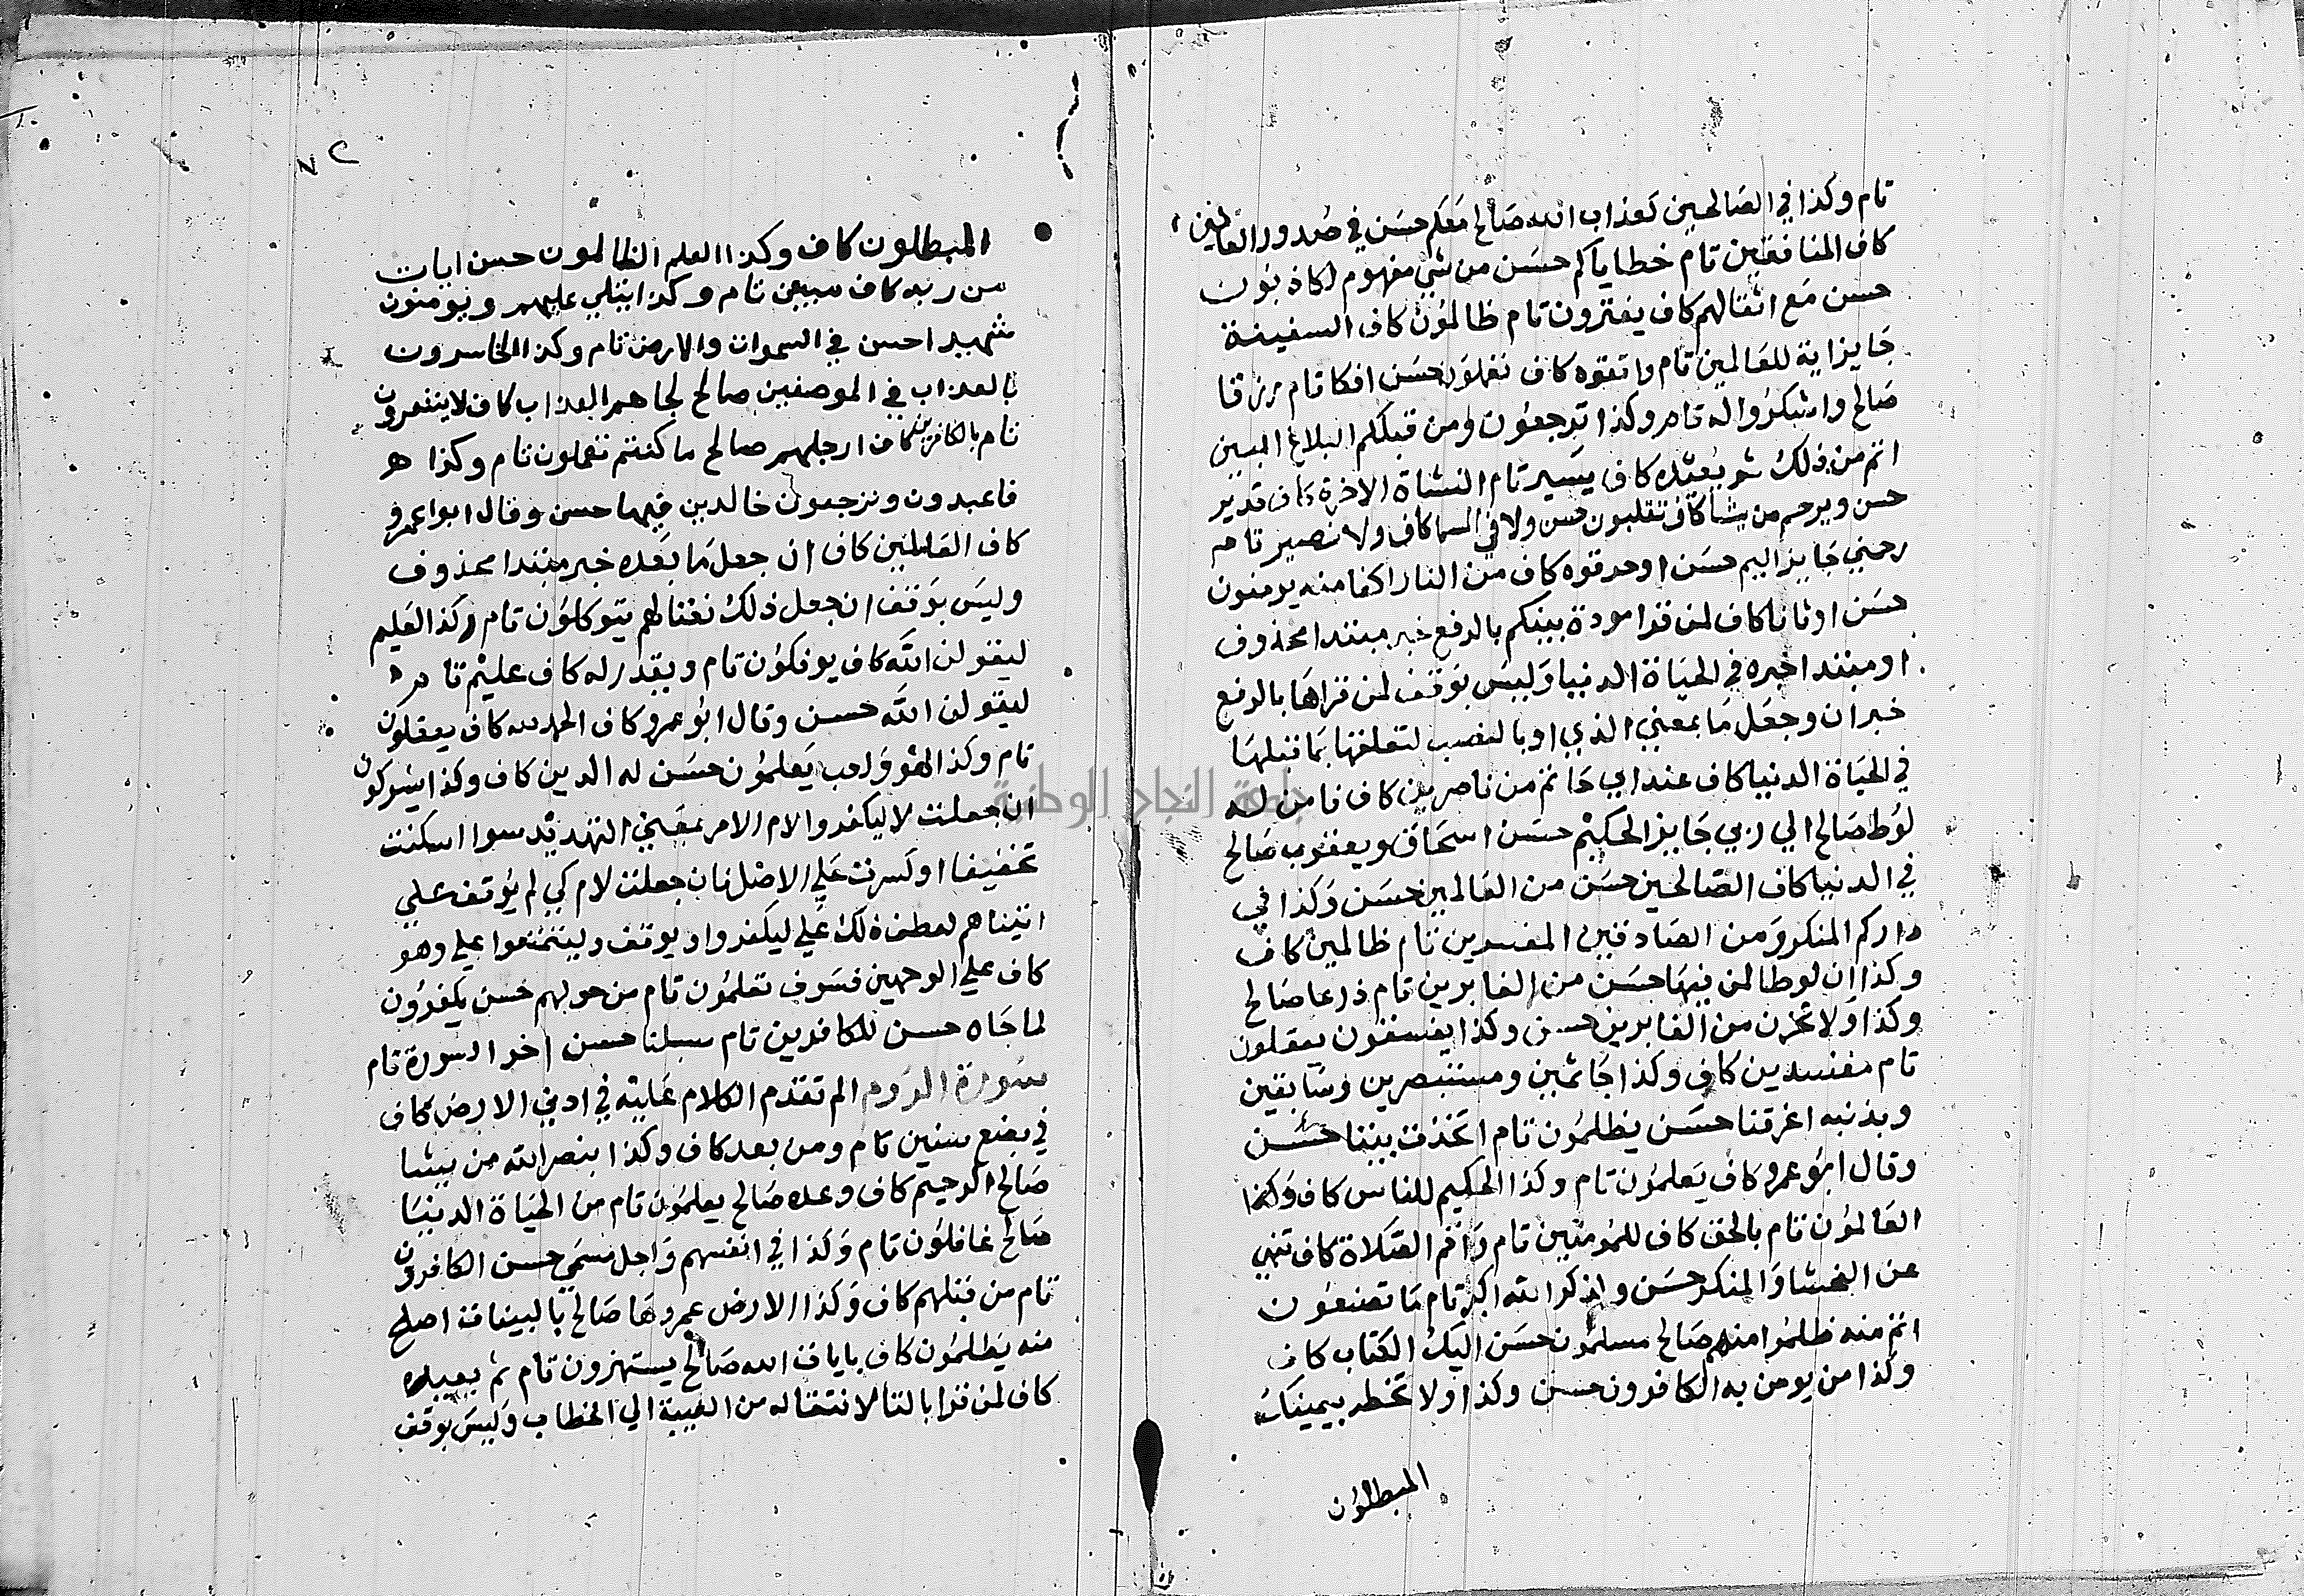 تام وكذا في الصالحين كعذاب الله صالح معكم حسن في صدور العالمين
كاف المنافقين تام خطاياكم حسن من شي مفهوم لكاذبون
حسن مع اثقالهم كاف يفترون تام ظالمون كاف السفينة
جايز اية للعالمين تام واتقوه كاف تعلمون حسن افكا تام رزقا
صالح واشكروا له تام وكذا ترجعون ومن قبلكم البلاغ المبين
اتم من ذلك ثم يعيده كاف يسير تام النشاة الاخرة كاف قدير
حسن ويرحم من يشا كاف تقلبون حسن ولا في السما كاف ولا نصير تام
رحمتي جايز اليم حسن او حرقوه كاف من النار اكفا منه يومنون
حسن اوثانا كاف لمن قرا مودة بينكم بالرفع خبر مبتدا محذوف
او مبتدا خبره في الحياة الدنيا وليس بوقف لمن قراها بالرفع
خبر ان وجعل ما بمعني الذي او بالنصب لتعلقها بما قبلها
في الحياة الدنيا كاف عند ابي حاتم من ناصرين كاف فامن له
لوط صالح الي ربي جايز الحكيم حسن اسحاق ويعقوب صالح
في الدنيا كاف الصالحين حسن من العالمين حسن وكذا في
داركم المنكر ومن الصادقين المفسدين تام ظالمين كاف
وكذا ان لوطا لمن فيها حسن من الغابرين تام ذرعا صالح
وكذا ولا تحزن من الغابرين حسن وكذا يفسقون يعقلون
تام مفسدين كاف وكذا جاثمين ومستبصرين وسابقين
وبذنبه اغرقنا حسن يظلمون تام اتخذت بيتا حسن
وقال ابو عمرو كاف يعلمون تام وكذا الحكيم للناس كاف وكذا
العالمون تام بالحق كاف للمومنين تام واقم الصلاة كاف تنهي
عن الفحشا والمنكر حسن ولذكر الله اكبر تام ما تصنعون
اتم منه ظلموا منهم صالح مسلمون حسن اليك الكتاب كاف
وكذا من يومن به الكافرون حسن وكذا ولا تخطه بيمينك
المبطلون
المبطلون كاف وكذا العلم الظالمون حسن ايات
من ربه كاف مبين تام وكذا يتلي عليهم ويومنون
شهيدا حسن في السموات والارض تام وكذا الخاسرون
بالعذاب في الموضعين صالح لجاهم العذاب كاف لا يشعرون
تام بالكافرين كاف ارجلهم صالح ما كنتم تعملون تام وكذا هر
فاعبدون وترجعون خالدين فيها حسن وقال ابو اعمرو
كاف العاملين كاف ان جعل ما بعده خبر مبتدا محذوف
وليس بوقف ان جعل ذلك نعتا لهم يتوكلون تام وكذا العليم
ليقولن الله كاف يوفكون تام ويقدر له كاف عليم تام
ليقولن الله حسن وقال ابو عمرو كاف الحمد لله كاف يعقلون
تام وكذا لهو ولعب يعلمون حسن له الدين كاف وكذا يشركون
ان جعلت لا ليكفروا لام الامر بمعني التهديد سوا اسكنت
تخفيفا او كسرت علي الاصل فان جعلت لام كي لم يوقف علي
اتيناهم لعطف ذلك علي ليكفروا ويوقف وليتمتعوا علي وهو
كاف علي الوجهين فسوف تعلمون تام من حولهم حسن يكفرون
لما جاه حسن للكافرين تام سبلنا حسن اخر السورة تام
سورة الروم الم تقدم الكلام عليه في ادني الارض كاف
في بضع سنين تام ومن بعد كاف وكذا بنصر الله من يشا
صالح الرحيم كاف وعده صالح يعلمون تام من الحياة الدنيا
صالح غافلون تام وكذا في انفسهم واجل مسمي حسن الكافرون
تام من قبلهم كاف وكذا الارض عمروها صالح بالبينات اصلح
منه يظلمون كاف بايات الله صالح يستهزون تام ثم يعيده
كاف لمن قرا بالتا لانتقاله من الغيبة الي الخطاب وليس بوقف
جامعة النجاح الوطنية